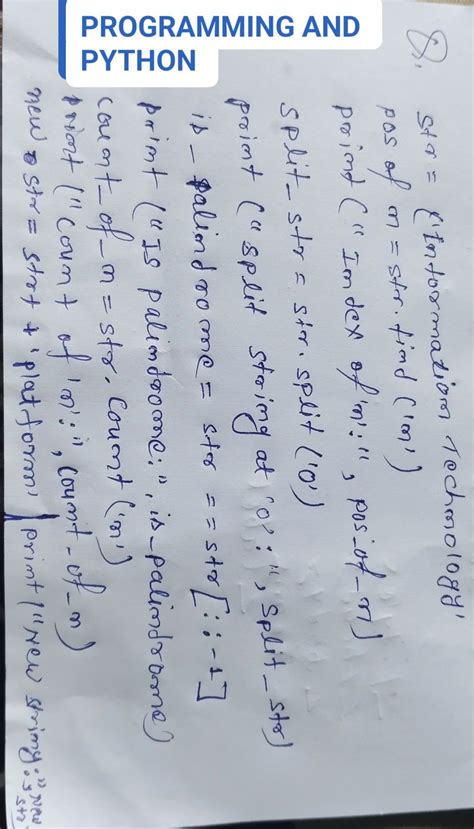 PROGRAMMING AND
PYTHON
8.
str = ('Information Technology'
pos of n = str.find ('n')
print (" Index of 'n' : ", pos_of_n)
split_str = str.split ('o')
print ("split string at 'o' : ", split_str)
is_palindrome = str == str[::-1]
print ("Is palindrome: ", is_palindrome)
count_of_n = str.count ('n')
print ("count of 'n': ", count_of_n)
new str = str + 'platform' print ("New string: " new str